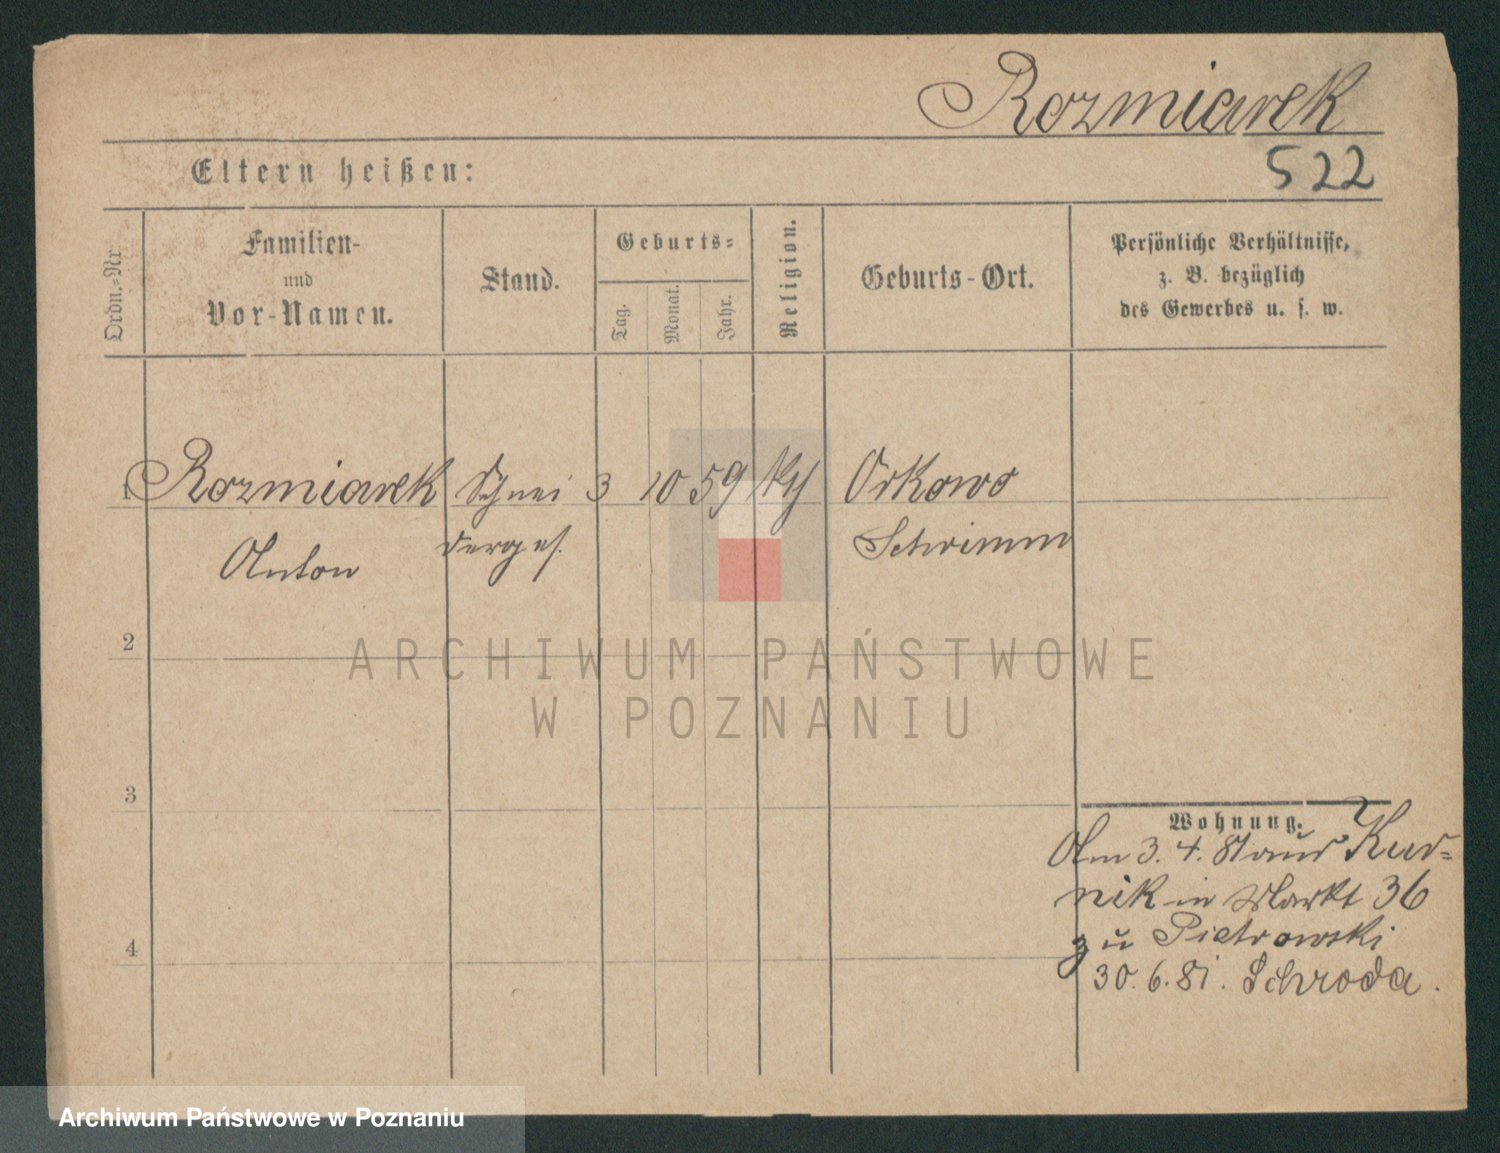 Rozmiarek
Eltern heißen:
522
Ordn.-Nr.
Familien-
und
Vor-Namen.
Stand.
Geburts-
Tag.
Monat.
Jahr.
Religion.
Geburts-Ort.
Persönliche Verhältnisse,
z. B. bezüglich
des Gewerbes u. s. w.
1 Rozmiarek Schnei 3 10 59 Orkowo
Anton derges. Schrimm
2
3
4
Wohnung.
Am 3. 4. 81 aus Kur-
nik in Markt 36
zu Pietrowski
30. 6. 81. Schroda.
ARCHIWUM PAŃSTWOWE
W POZNANIU
Archiwum Państwowe w Poznaniu